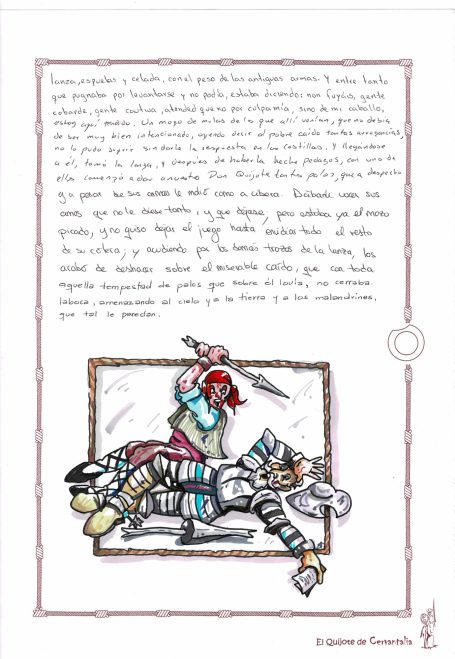 lanza, espuelas y celada, con el peso de las antiguas armas. Y entre tanto
que pugnaba por levantarse y no podía, estaba diciendo: non fuyáis, gente
cobarde, gente cautiva, atended que no por culpa mía, sino de mi caballo,
estoy aquí tendido. Un mozo de mulas de los que allí venían, que no debía
de ser muy bien intencionado, oyendo decir al pobre caído tantas arrogancias,
no lo pudo sufrir sin darle la respuesta en las costillas. Y llegándose
a él, tomó la lanza, y después de haberla hecho pedazos, con uno de
ellos comenzó a dar a nuestro Don Quijote tantos palos, que a despecho
y a pesar de sus armas le molió como a cibera. Dábanle voces sus
amos que no le diese tanto, y que le dejase; pero estaba ya el mozo
picado, y no quiso dejar el juego hasta envidar todo el resto
de su cólera; y acudiendo por los demás trozos de la lanza, los
acabó de deshacer sobre el miserable caído, que con toda
aquella tempestad de palos que sobre él llovía, no cerraba
la boca, amenazando al cielo y a la tierra y a los malandrines,
que tal le paredan.
El Quijote de Cervantalia